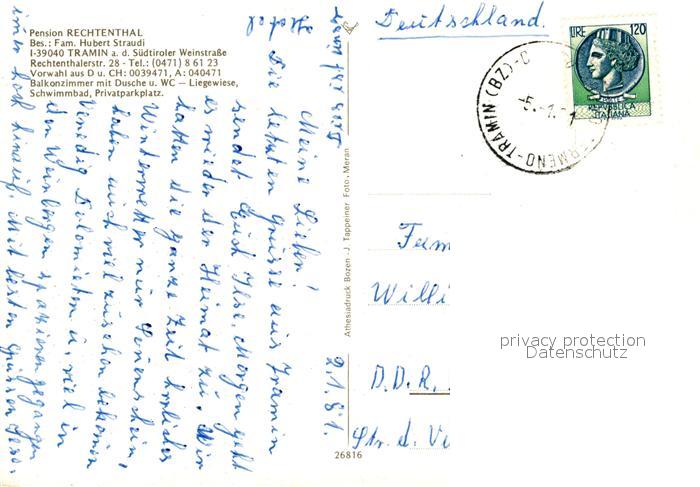 Pension RECHTENTHAL
Bes.: Fam. Hubert Straudi
I-39040 TRAMIN a. d. Südtiroler Weinstraße
Rechtenthalerstr. 28 - Tel.: (0471) 8 61 23
Vorwahl aus D u. CH: 0039471, A: 040471
Balkonzimmer mit Dusche u. WC — Liegewiese,
Schwimmbad, Privatparkplatz.
2.1.81.
Meine Lieben!
Die letzten Grüsse aus Tramin
sendet Euch Ilse. Morgen geht
es wieder der Heimat zu. Wir
hatten die ganze Zeit herrliches
Winterwetter nur Sonnenschein,
haben auch viel zu sehen bekommen
Venedig Dolomieten u. viel in
den Weinbergen spazieren gegangen
immer hoch hinauf. Mit besten Grüssen
Athesiadruck Bozen - J. Tappeiner Foto - Meran
26816
Deutschland.
LIRE 120
REPVBBLICA
ITALIANA
TERMENO-TRAMIN (BZ)
Fam
Willi
D.D.R.
Str. d. V
privacy protection
Datenschutz